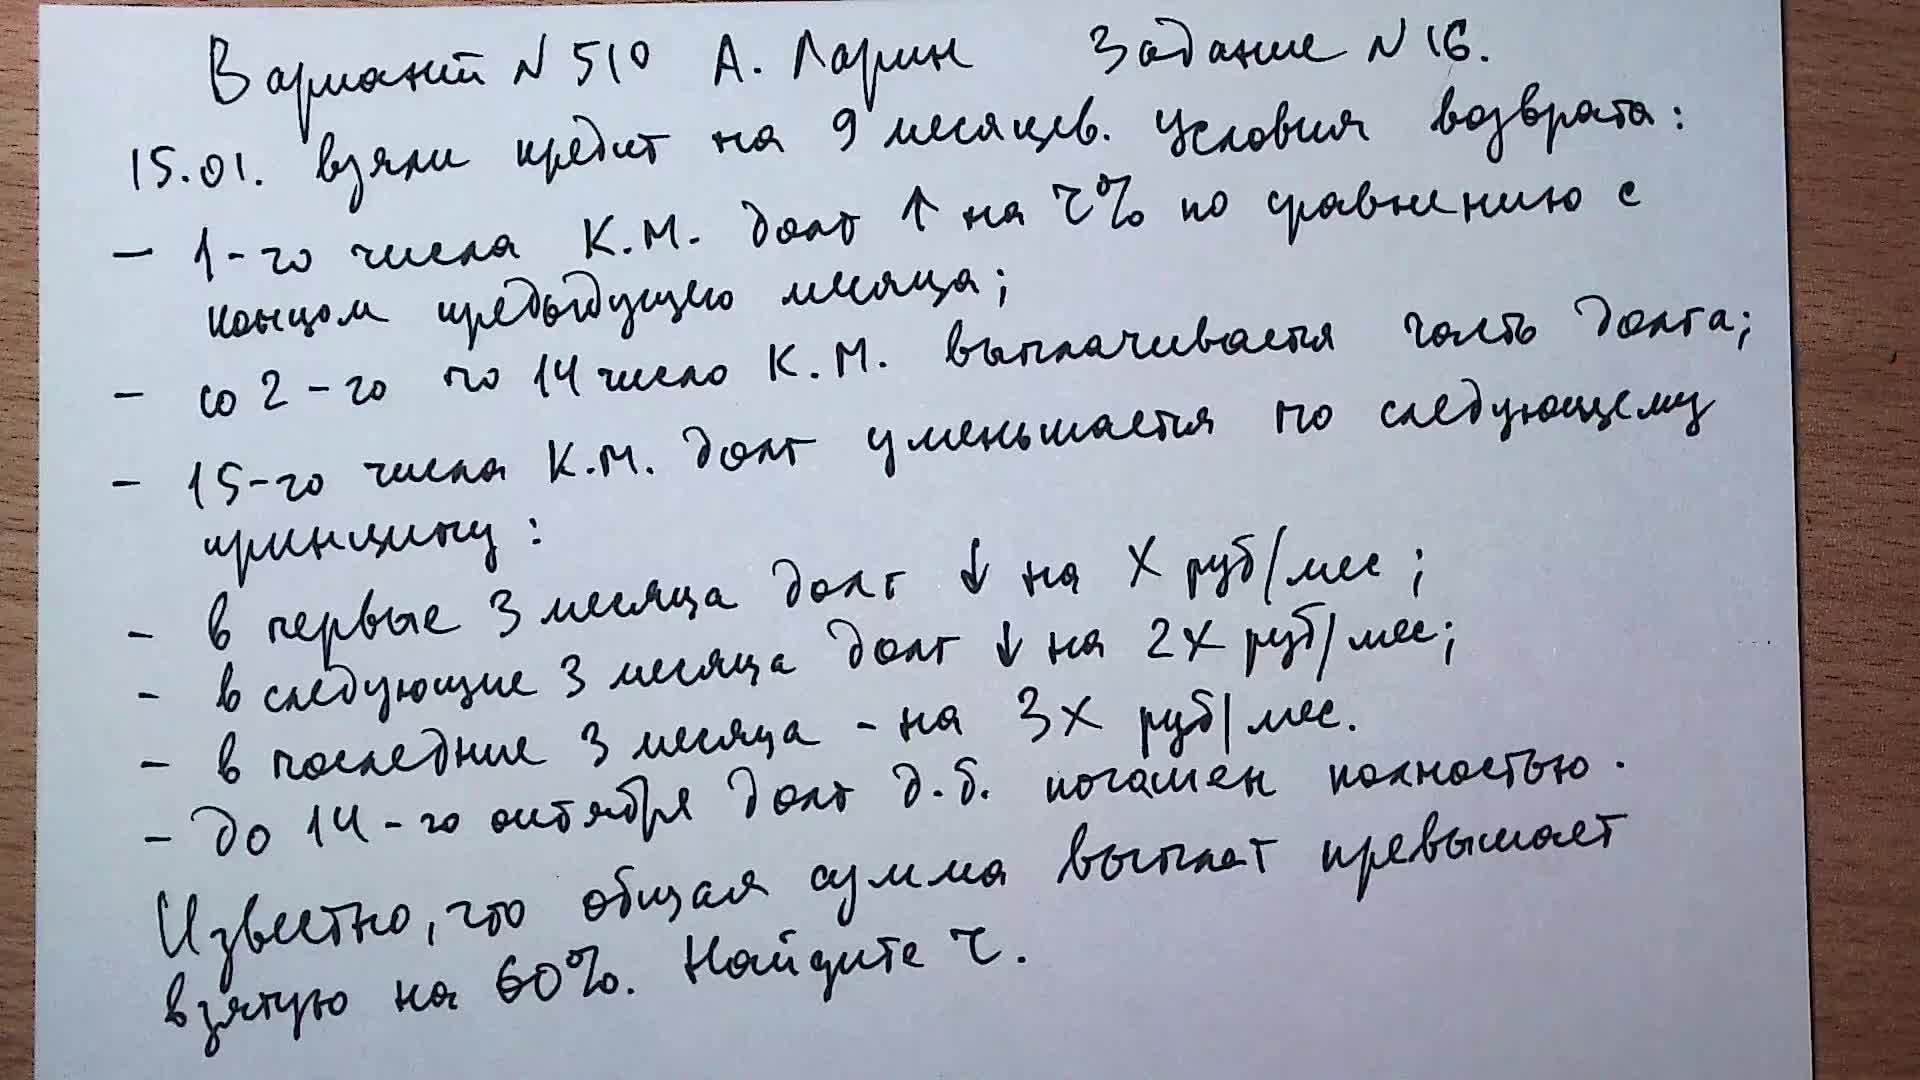 Вариант N 510 А. Ларин Задание N 16.
15.01. взяли кредит на 9 месяцев. Условия возврата:
- 1-го числа К.М. долг ↑ на r% по сравнению с
концом предыдущего месяца;
- со 2-го по 14 число К.М. выплачивается часть долга;
- 15-го числа К.М. долг уменьшается по следующему
принципу:
- в первые 3 месяца долг ↓ на X руб/мес;
- в следующие 3 месяца долг ↓ на 2X руб/мес;
- в последние 3 месяца - на 3X руб/мес.
- до 14-го октября долг д.б. погашен полностью.
Известно, что общая сумма выплат превышает
взятую на 60%. Найдите r.